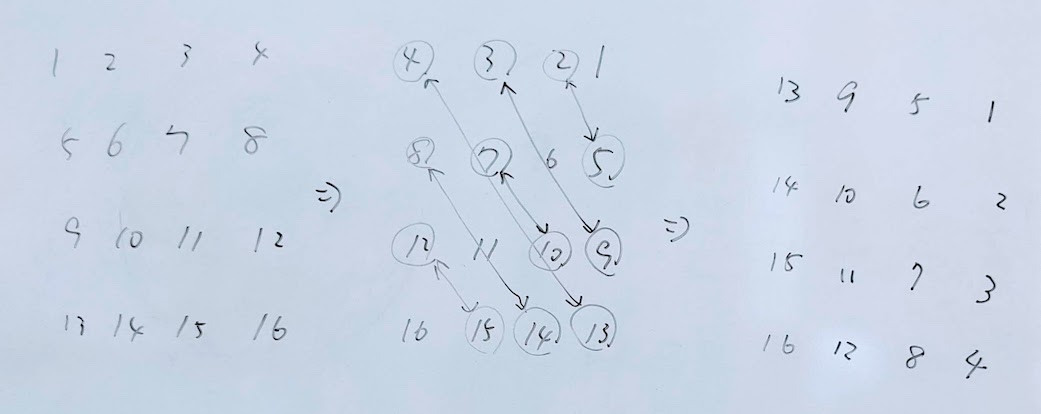 1 2 3 4
5 6 7 8
9 10 11 12
13 14 15 16
⇒
4 3 2 1
8 7 6 5
12 11 10 9
16 15 14 13
⇒
13 9 5 1
14 10 6 2
15 11 7 3
16 12 8 4